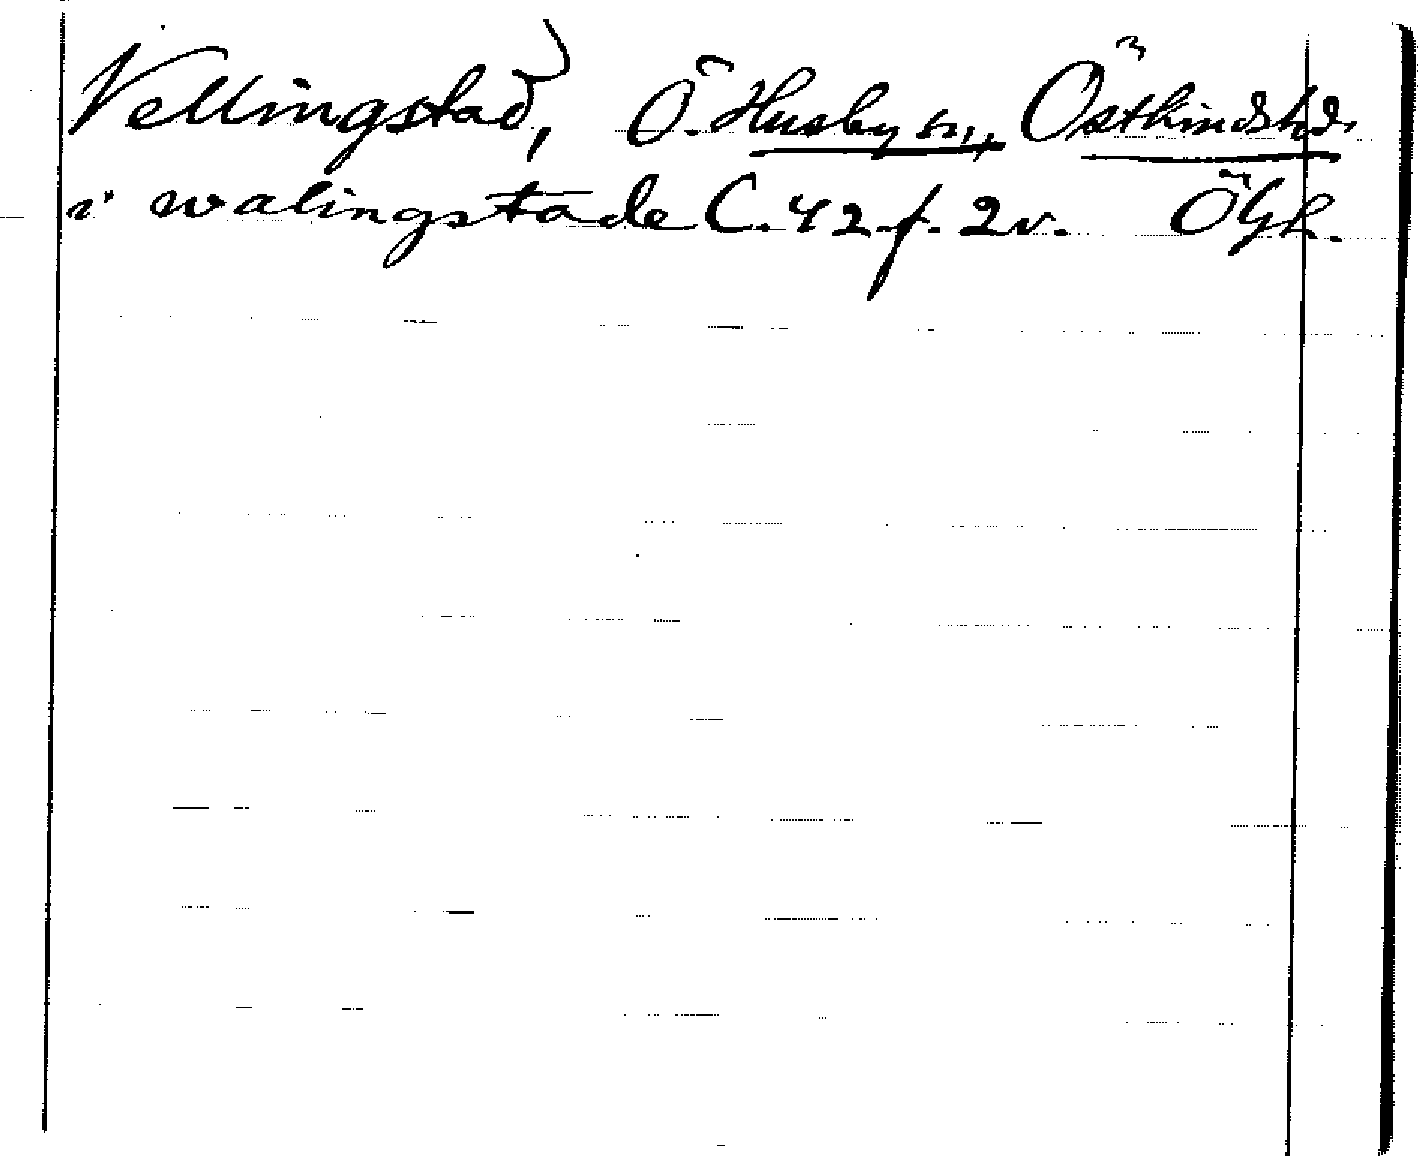 Vellingstad, Ö. Husby sn., Östkinds hd.
i walingstade C. 42 f. 2v. Ögh.